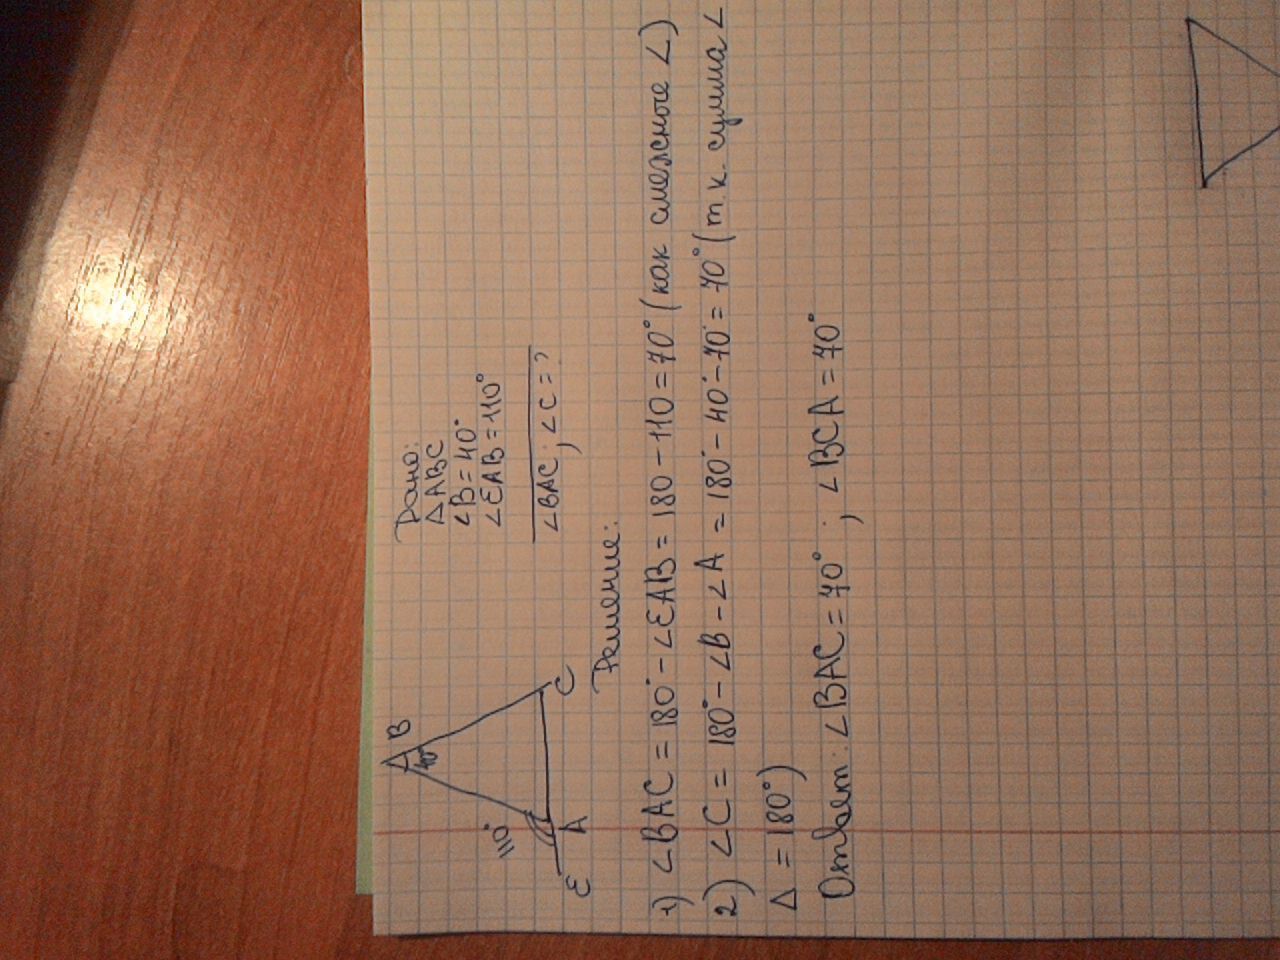 Дано:
△ABC
∠B = 40°
∠EAB = 110°
∠BAC; ∠C = ?
B
40°
110°
E
A
C
Решение:
1) ∠BAC = 180° - ∠EAB = 180 - 110 = 70° (как смежные ∠)
2) ∠C = 180° - ∠B - ∠A = 180° - 40° - 70° = 70° (т.к. сумма ∠
△ = 180°)
Ответ: ∠BAC = 70° ; ∠BCA = 70°